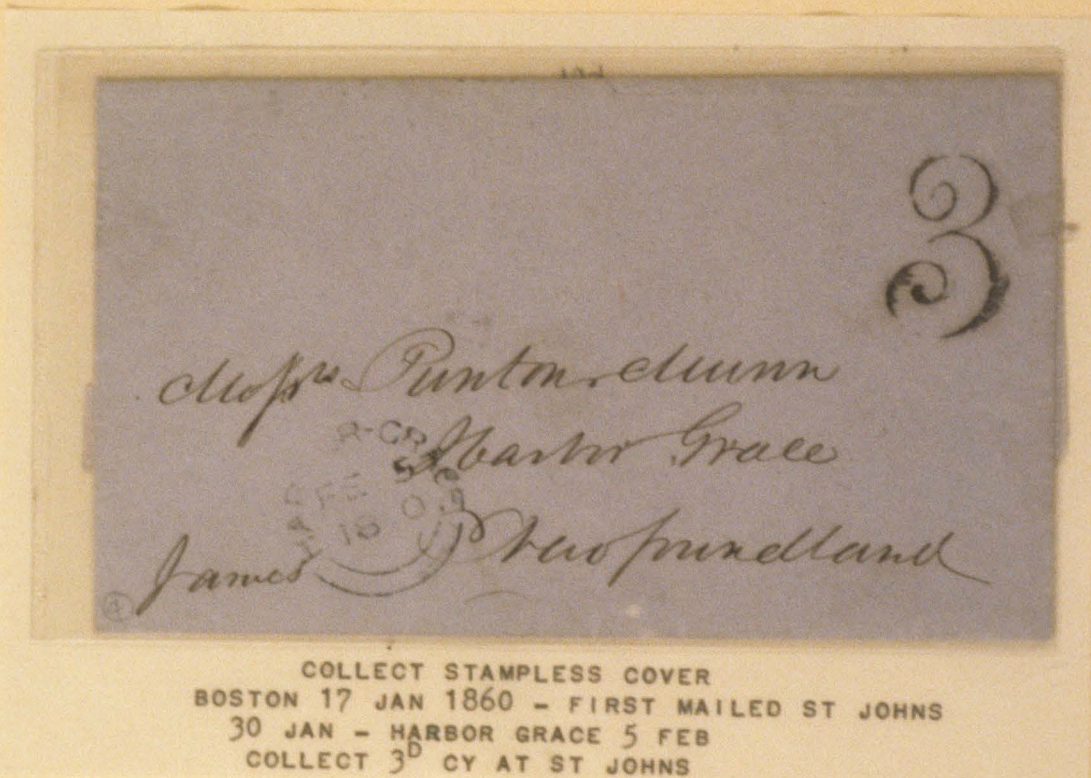 3
Messrs Punton & Munn
Harbor Grace
Newfoundland
James
COLLECT STAMPLESS COVER
BOSTON 17 JAN 1860 – FIRST MAILED ST JOHNS
30 JAN – HARBOR GRACE 5 FEB
COLLECT 3D CY AT ST JOHNS